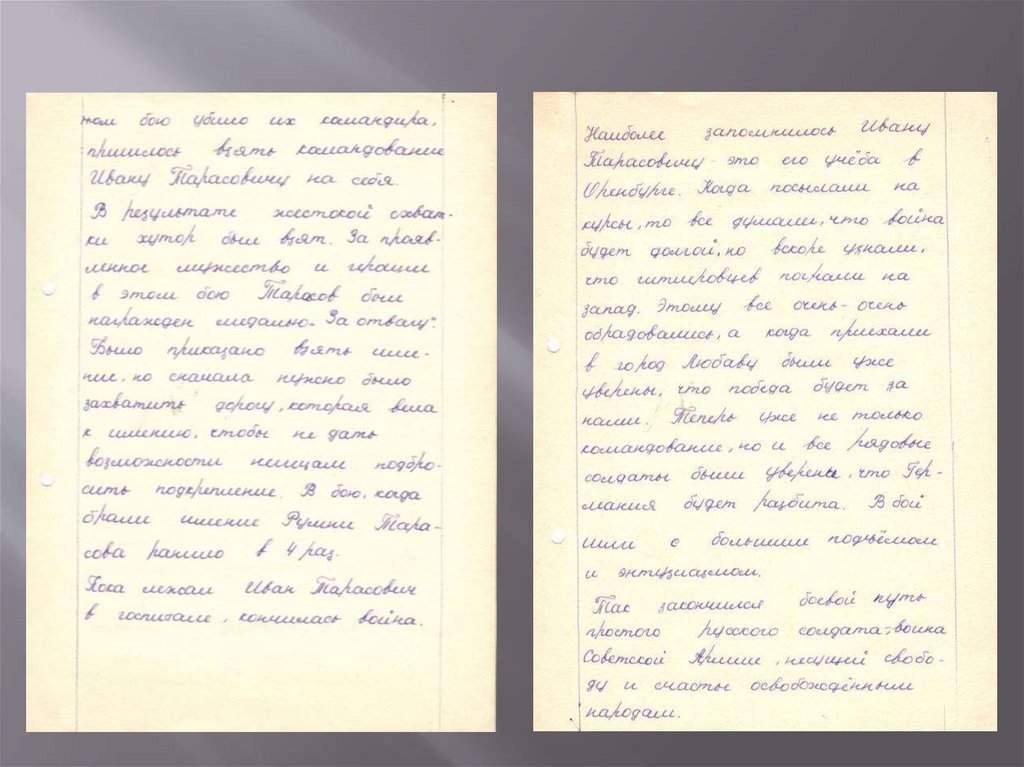 том бою убило их командира,
пришлось взять командование
Ивану Тарасовичу на себя.
В результате жестокой схват-
ки хутор был взят. За прояв-
ленное мужество и героизм
в этом бою Тарасов был
награжден медалью „За отвагу".
Было приказано взять име-
ние, но сначала нужно было
захватить дорогу, которая вела
к имению, чтобы не дать
возможности немцам подбро-
сить подкрепление. В бою, когда
брали имение Румни Тара-
сова ранило в 4 раз.
Пока лежал Иван Тарасович
в госпитале, кончилась война.
Наиболее запомнилось Ивану
Тарасовичу - это его учёба в
Оренбурге. Когда посылали на
курсы, то все думали, что война
будет долгой, но вскоре узнали,
что гитлеровцев погнали на
запад. Этому все очень-очень
обрадовались, а когда приехали
в город Любаву были уже
уверены, что победа будет за
нами! Теперь уже не только
командование, но и все рядовые
солдаты были уверены, что Гер-
мания будет разбита. В бой
шли с большим подъёмом
и энтузиазмом.
Так закончился боевой путь
простого русского солдата-воина
Советской Армии, несущей свобо-
ду и счастье освобождённым
народам.